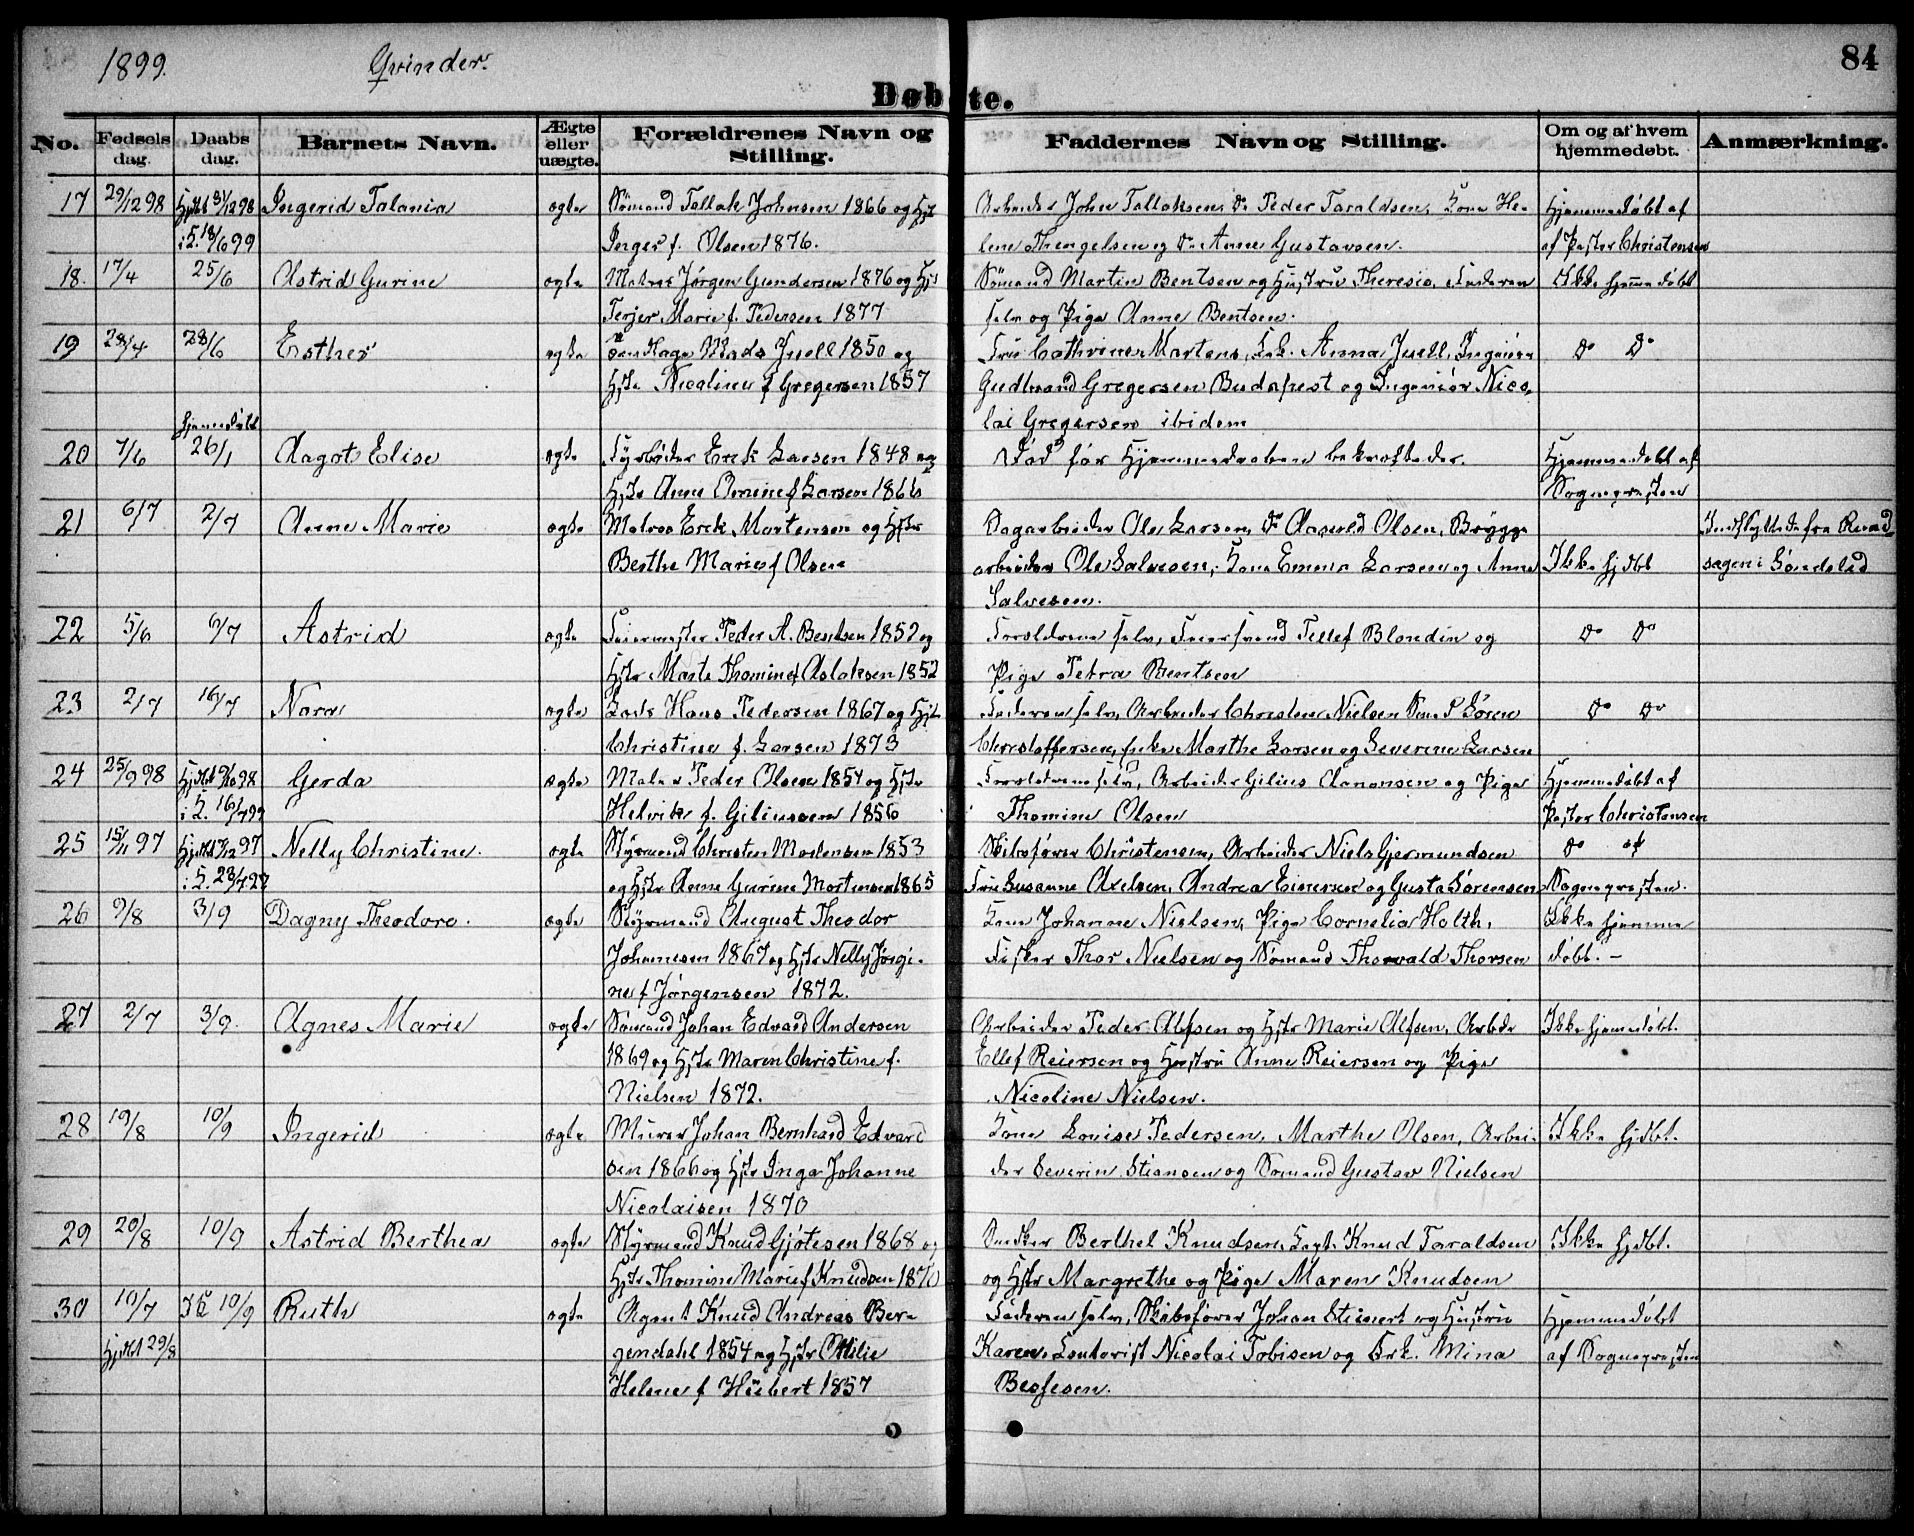 1899. Qvinder.
84
Døbte.
No. Fødsels dag. Daabs dag. Barnets Navn. Ægte eller uægte. Forældrenes Navn og Stilling. Faddernes Navn og Stilling. Om og af hvem hjemmedøbt. Anmærkning.
17 29/12 98 Hjdbt 31/12 98 Ingerid Talania ægte Sømand Tallak Johnsen 1866 og Hst Arbeider John Tallaksen, Do Peder Taraldsen, Kone He- Hjemmedøbt af
i K. 18/6 99 Inger f. Olsen 1876. lene Thengelsen og Do Anne Gustavsen. af Pastor Christensen
18. 17/4 25/6 Astrid Gurine ægte Matros Jørgen Gundersen 1876 og Hst Sømand Martin Bentsen og Hustru Theresia, Faderen Ikke hjemmedøbt
Terjer Marie f. Pedersen 1877 selv og Pige Anne Bentsen.
19 28/4 28/6 Esther ægte Mads Juell 1850 og Fru Cathrine Martens, Frk. Anna Juell, Ingeniør Do Do
Hstr Nicoline f Gregersen 1857 Gudbrand Gregersen Budapest og Ingeniør Nico-
lai Gregersen ibidem
hjemmedøbt
20 7/6 26/1 Aagot Elise ægte Fyrbøder Erik Larsen 1848 og Død før Hjemmedaaben bekræftedes. Hjemmedøbt af
Hstr Anne Omine f Larsen 1866 Sognepresten
21 6/7 2/7 Anne Marie ægte Matros Erik Martensen og Hstr Dagarbeider Ole Larsen, Do Aasuld Olsen, Brygge- Indflyttede fra Rund
Berthe Marie f Olsen arbeider Ole Salvesen, Kone Emma Larsen og Anne Ikke hjdbt sagen i Søndeled
Salvesen.
22 5/6 9/7 Astrid ægte Feiermester Peder A. Bentsen 1852 og Forældrene selv, Feiersvend Tellef Blondin og Do Do
Hstr Marte Thomine f Aslaksen 1852 Pige Petra Bentsen
23 2/7 16/7 Nora ægte Lods Hans Pedersen 1867 og Hst Faderen selv, Arbeider Christen Nielsen Søren Do Do
Christine f. Larsen 1873 Christoffersen, Marthe Larsen og Severine Larsen
24 25/9 98 Hjdbt 9/10 98 Gerda ægte Maler Peder Olsen 1854 og Hstr Forældrene selv, Arbeider Gilius Aanonsen og Pige Hjemmedøbt af
i K. 16/7 99 Helvike f. Giliussen 1856 Thomine Olsen Pastor Christensen
25 15/11 97 Hjdbt 97 Nelly Christine. ægte Styrmand Christen Mortensen 1853 Skibsfører Christensen, Arbeider Niels Gjermundsen Do af
i K. 23/7 99 og Hstr Anne Gurine Mortensen 1865 Fru Susanne Axelsen, Andrea Einersen og Gusta Sørensen Sognepresten.
26 9/8 3/9 Dagny Theodore. ægte Styrmand August Theodor Kone Johanne Nielsen, Pige Cornelia Holth, Ikke hjemme
Johannesen 1867 og Hstr Nelly Jørgi- Fisker Thor Nielsen og Sømand Thorvald Thorsen døbt. –
ne f Jørgensen 1872.
27 2/7 3/9. Agnes Marie ægte Sømand Johan Edvard Andersen Arbeider Peder Alfsen og Hstr Marie Alfsen, Arbder Ikke hjemmedøbt.
1869 og Hstr Maren Christine f. Ellef Reiersen og Hustru Anne Reiersen og Pige
Nielsen 1872. Nicoline Nielsen.
28 19/8 10/9 Ingerid ægte Murer Johan Bernhard Edvard Kone Louise Pedersen, Marthe Olsen, Arbei- Ikke hjdbt.
sen 1866 og Hstr Inga Johanne der Severin Stiansen og Sømand Gustav Nielsen
Nicolaisen 1870
29 20/8 10/9 Astrid Berthea ægte Styrmand Knud Gjøtesen 1868 og Snedker Berthel Knudsen, Knud Taraldsen Ikke hjdbt.
Hstr Thomine Marie f Knudsen 1870 og Hstr Margrethe og Pige Maren Knudsen
30 10/7 IK 10/9 Ruth ægte Agent Knud Andreas Ber- Faderen selv, Skibsfører Johan Stienert og Hustru Hjemmedøbt
Hjdbt 29/8 gendahl 1854 og Hstr Ottilie Karen, Kontorist Nicolai Tobisen og Frk. Mina af Sognepresten
Helene f Hübert 1857 Besfesen.